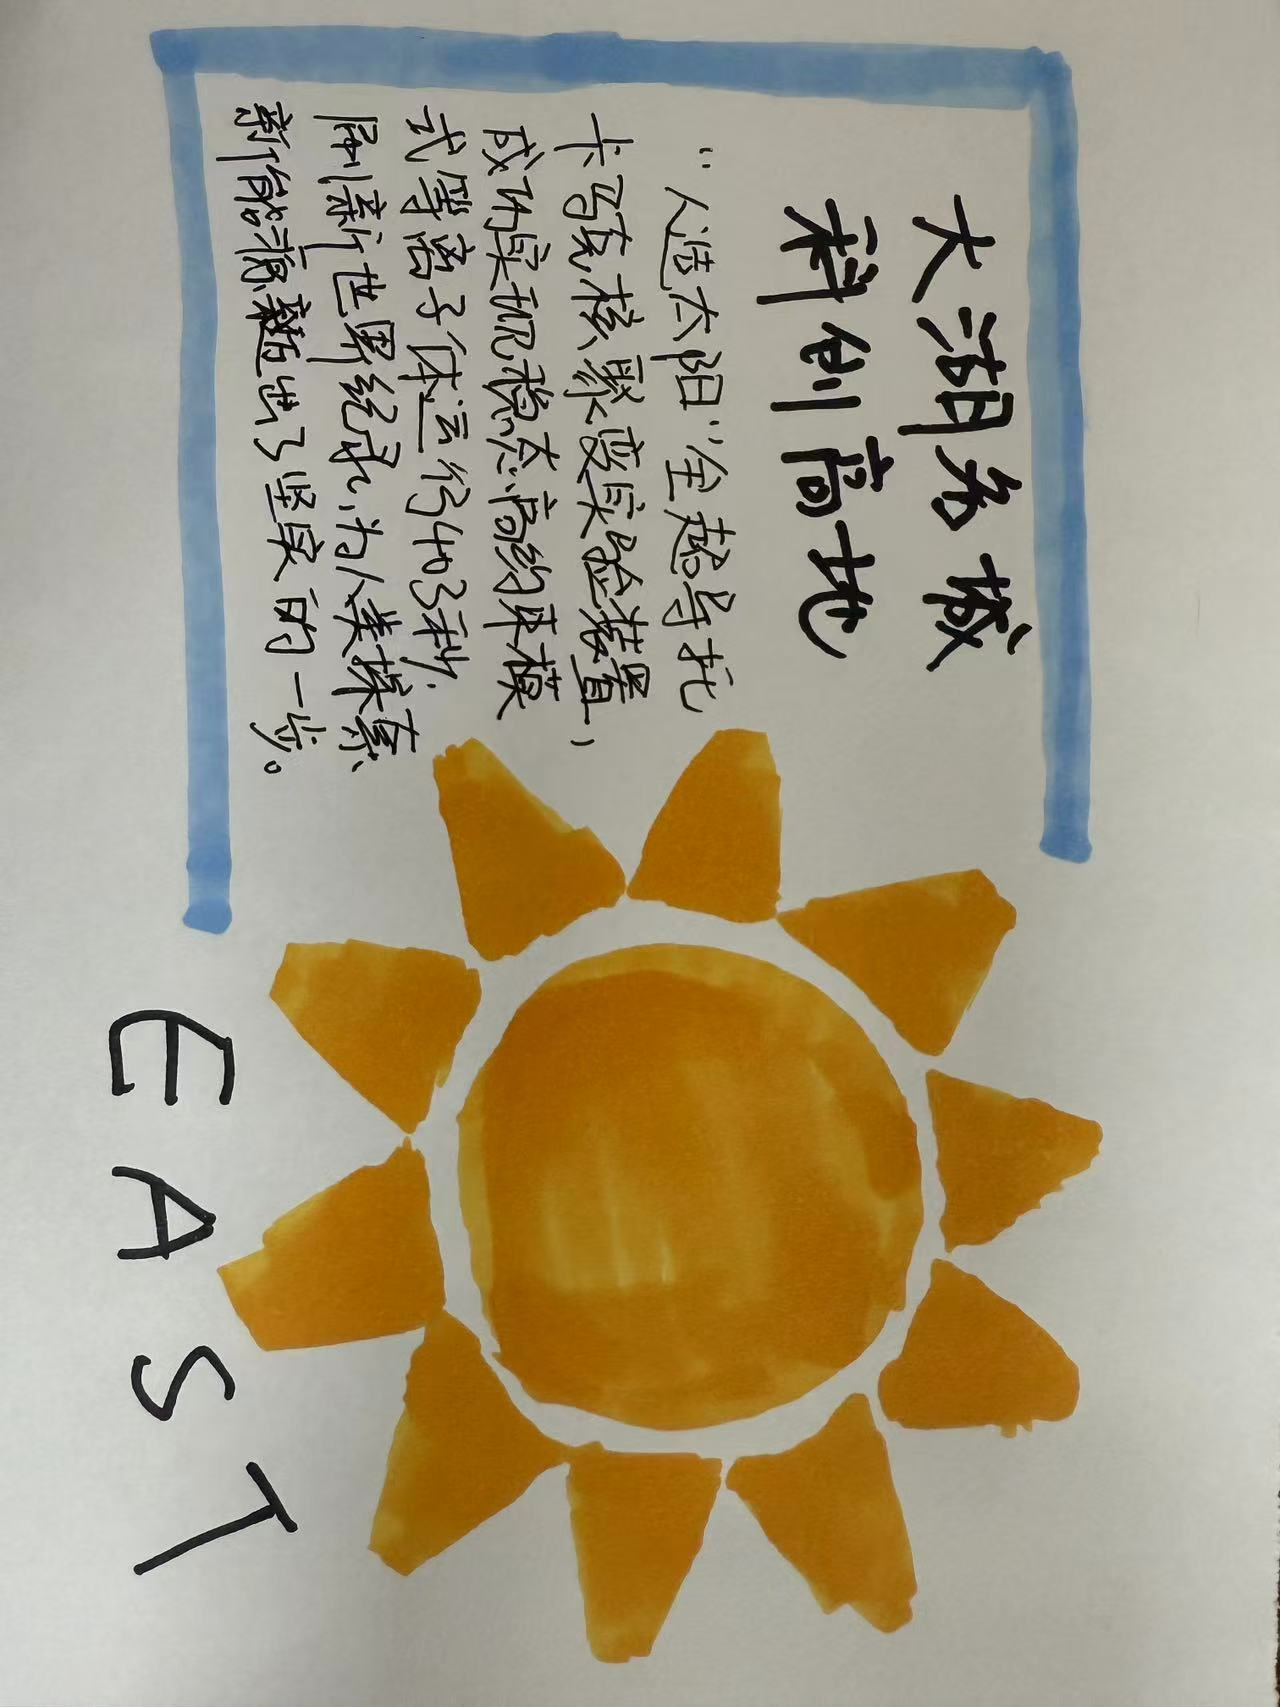 大湖名城
科创高地
"人造太阳"全超导托
卡马克核聚变实验装置，
成功实现稳态高约束模
式等离子体运行403秒，
刷新世界纪录，为人类探索
新能源迈出了坚实的一步。
EAST